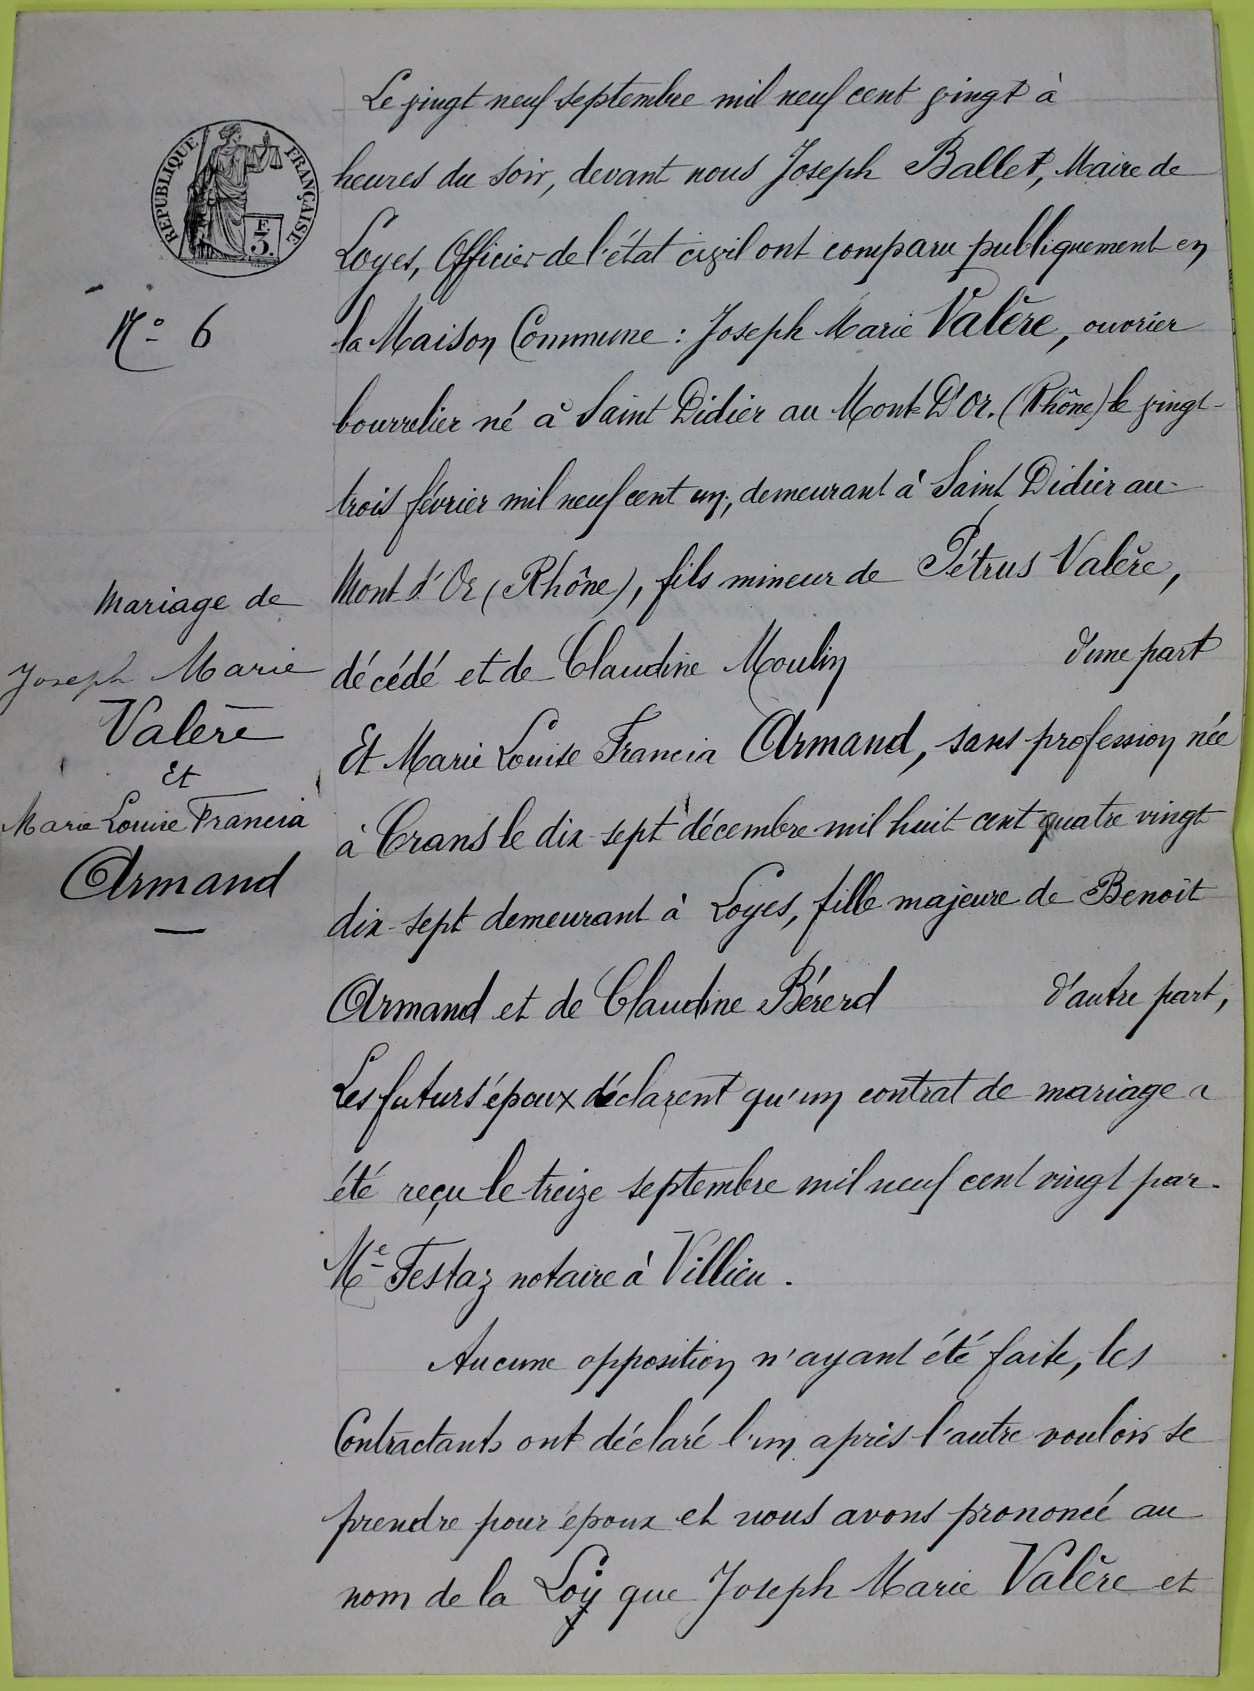 RÉPUBLIQUE FRANÇAISE
F
3.
N° 6
Mariage de
Joseph Marie
Valère
Et
Marie Louise Francia
Armand
Le vingt neuf septembre mil neuf cent vingt à
heures du soir, devant nous Joseph Ballet, Maire de
Loyes, Officier de l'état civil ont comparu publiquement en
la Maison Commune : Joseph Marie Valère, ouvrier
bourrelier né à Saint Didier au Mont D'Or. (Rhône) le vingt-
trois février mil neuf cent un, demeurant à Saint Didier au-
Mont d'Or (Rhône), fils mineur de Pétrus Valère,
décédé et de Claudine Moulin d'une part
Et Marie Louise Francia Armand, sans profession née
à Crans le dix-sept décembre mil huit cent quatre vingt
dix-sept demeurant à Loyes, fille majeure de Benoit
Armand et de Claudine Bérerd d'autre part,
Les futurs époux déclarent qu'un contrat de mariage a
été reçu le treize septembre mil neuf cent vingt par-
Me Festaz notaire à Villieu.
Aucune opposition n'ayant été faite, les
Contractants ont déclaré l'un après l'autre vouloir se
prendre pour époux et nous avons prononcé au
nom de la Loy que Joseph Marie Valère et